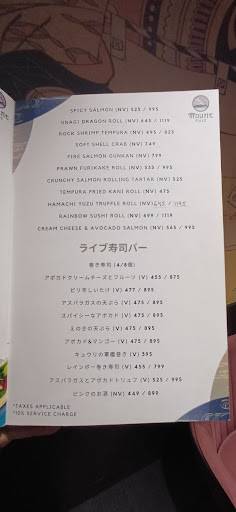 mount
SPICY SALMON (NV) 525 / 995
UNAGI DRAGON ROLL (NV) 645 / 1119
ROCK SHRIMP TEMPURA (NV) 495 / 825
SOFT SHELL CRAB (NV) 749
FIRE SALMON GUNKAN (NV) 799
PRAWN FURIKAKE ROLL (NV) 555 / 995
CRUNCHY SALMON ROLLING TARTAR (NV) 525
TEMPURA FRIED KANI ROLL (NV) 475
HAMACHI YUZU TRUFFLE ROLL (NV)
RAINBOW SUSHI ROLL (NV) 699 / 1119
CREAM CHEESE & AVOCADO SALMON (NV) 565 / 995
ライブ寿司バー
巻き寿司 (4/8個)
アボカドクリームチーズとフルーツ (V) 455 / 875
ピリ辛しいたけ (V) 477 / 895
アスパラガスの天ぷら (V) 475 / 895
スパイシーなアボカド (V) 475 / 895
えのきの天ぷら (V) 475 / 895
アボカド&マンゴー (V) 475 / 895
キュウリの軍艦巻き (V) 595
レインボー巻き寿司 (V) 455 / 799
アスパラガスとアボカドトリュフ (V) 525 / 995
ピンクのお酒 (NV) 449 / 899
*TAXES APPLICABLE
*10% SERVICE CHARGE